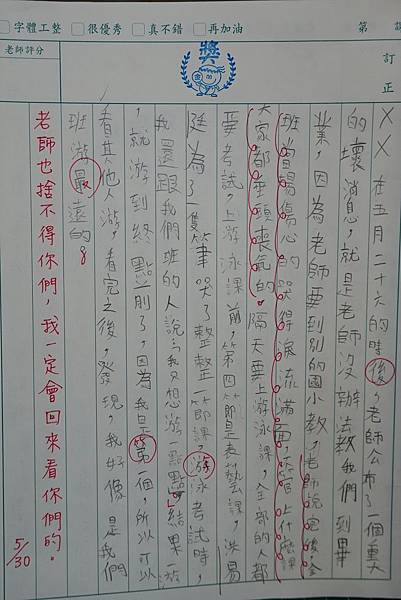 字體工整 很優秀 真不錯 再加油
第 課
老師評分
獎
訂正
XX在五月二十六的時後，老師公布了一個重大
的壞消息，就是老師沒辦法教我們到畢
業，因為老師要到別的國小教，老師說完後，全
班當場傷心的哭得淚流滿面，不管上什麼課
大家都垂頭喪氣的。隔天要上游泳課，全部的人都
要考試，上游泳課前，第四節是表藝課，洪易
廷為了一隻筆哭了整整一節課，游泳考試時，
我還跟我們班的人說：我只想游一點點，結果一游
，就游到終點前了，因為我是第一個，所以可以
看其他人游，看完之後，發現，我好像是我們
班游最遠的。
老師也捨不得你們，我一定會回來看你們的。
5/30